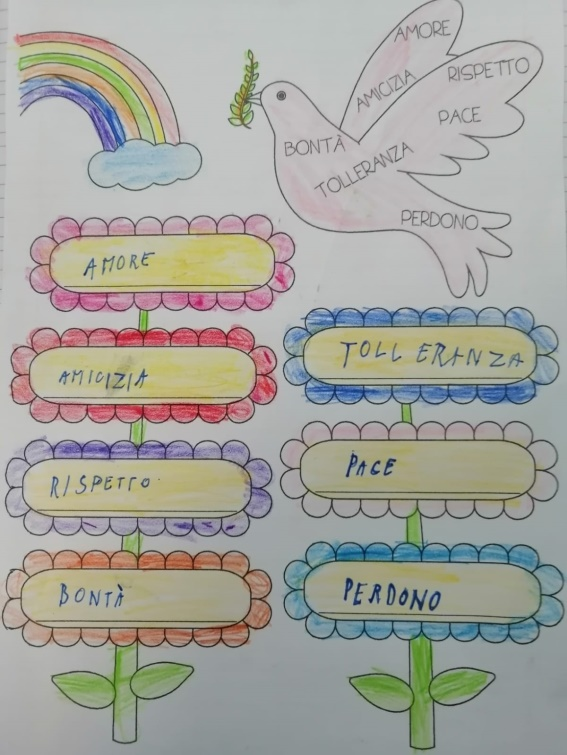 AMORE
AMICIZIA
RISPETTO
PACE
BONTÀ
TOLLERANZA
PERDONO
AMORE
AMICIZIA
RISPETTO
BONTÀ
TOLLERANZA
PACE
PERDONO